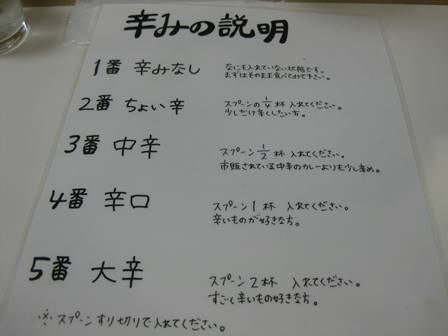 辛みの説明
1番 辛みなし
なにも入れていない状態です。
まずはそのまま食べてみて下さい。
2番 ちょい辛
スプーンの1/4杯 入れてください。
少しだけ辛くしたい方。
3番 中辛
スプーン1/2杯 入れてください。
市販されている中辛のカレーよりも少し辛め。
4番 辛口
スプーン1杯 入れてください。
辛いものが好きな方。
5番 大辛
スプーン2杯 入れてください。
すごく辛いもの好きな方。
※スプーンすり切りで入れてください。